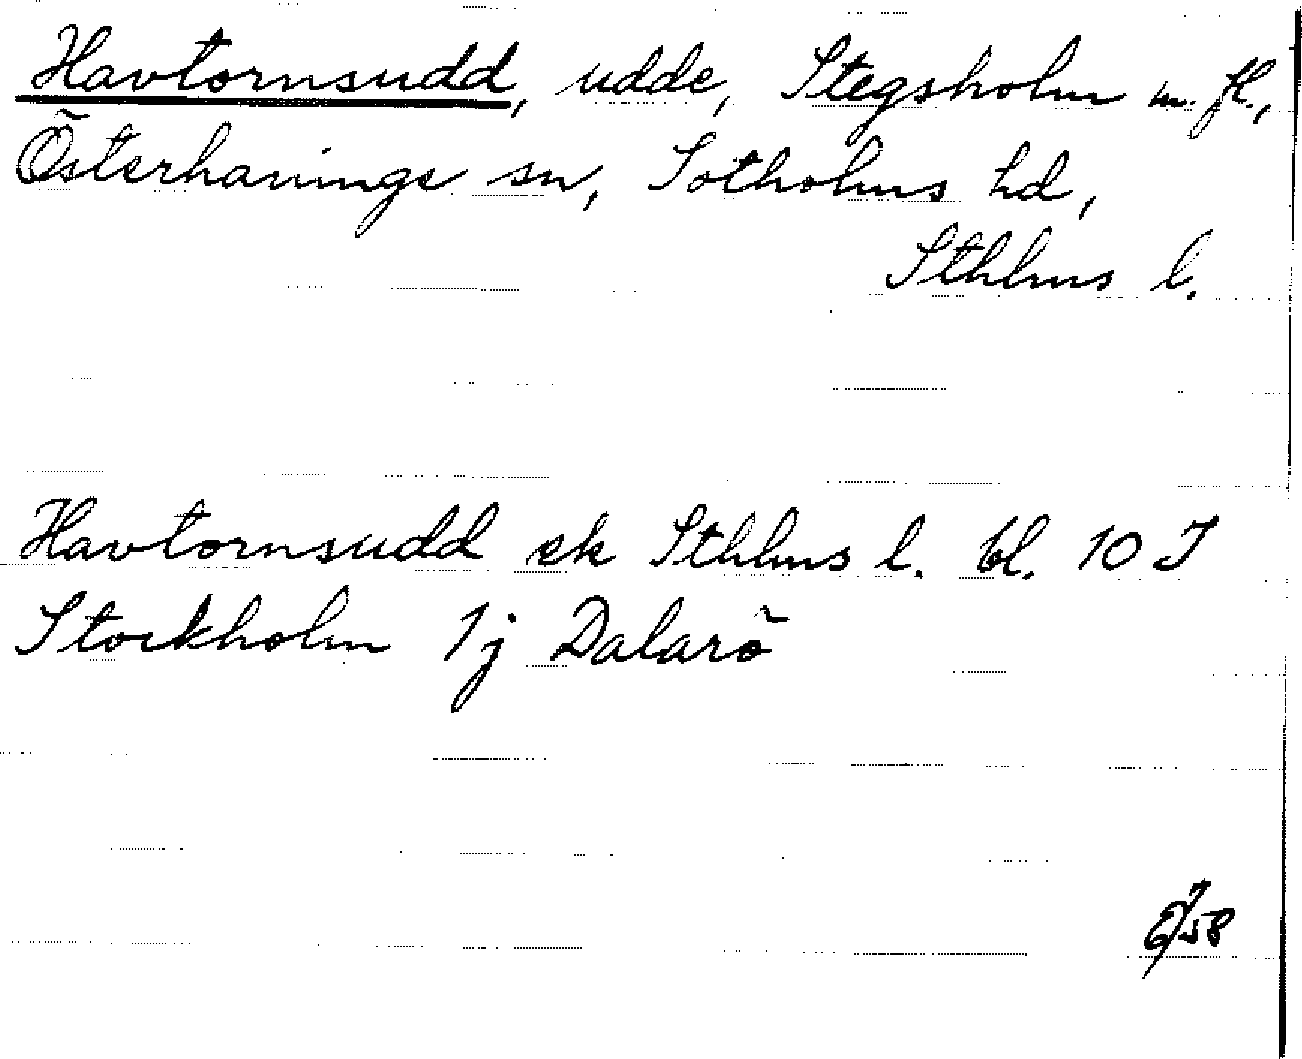 Havtornsudd, udde, Stegsholm m. fl.,
Österhaninge sn, Sotholms hd,
Sthlms l.
Havtornsudd ek Sthlms l. bl. 10 I
Stockholm 1j Dalarö